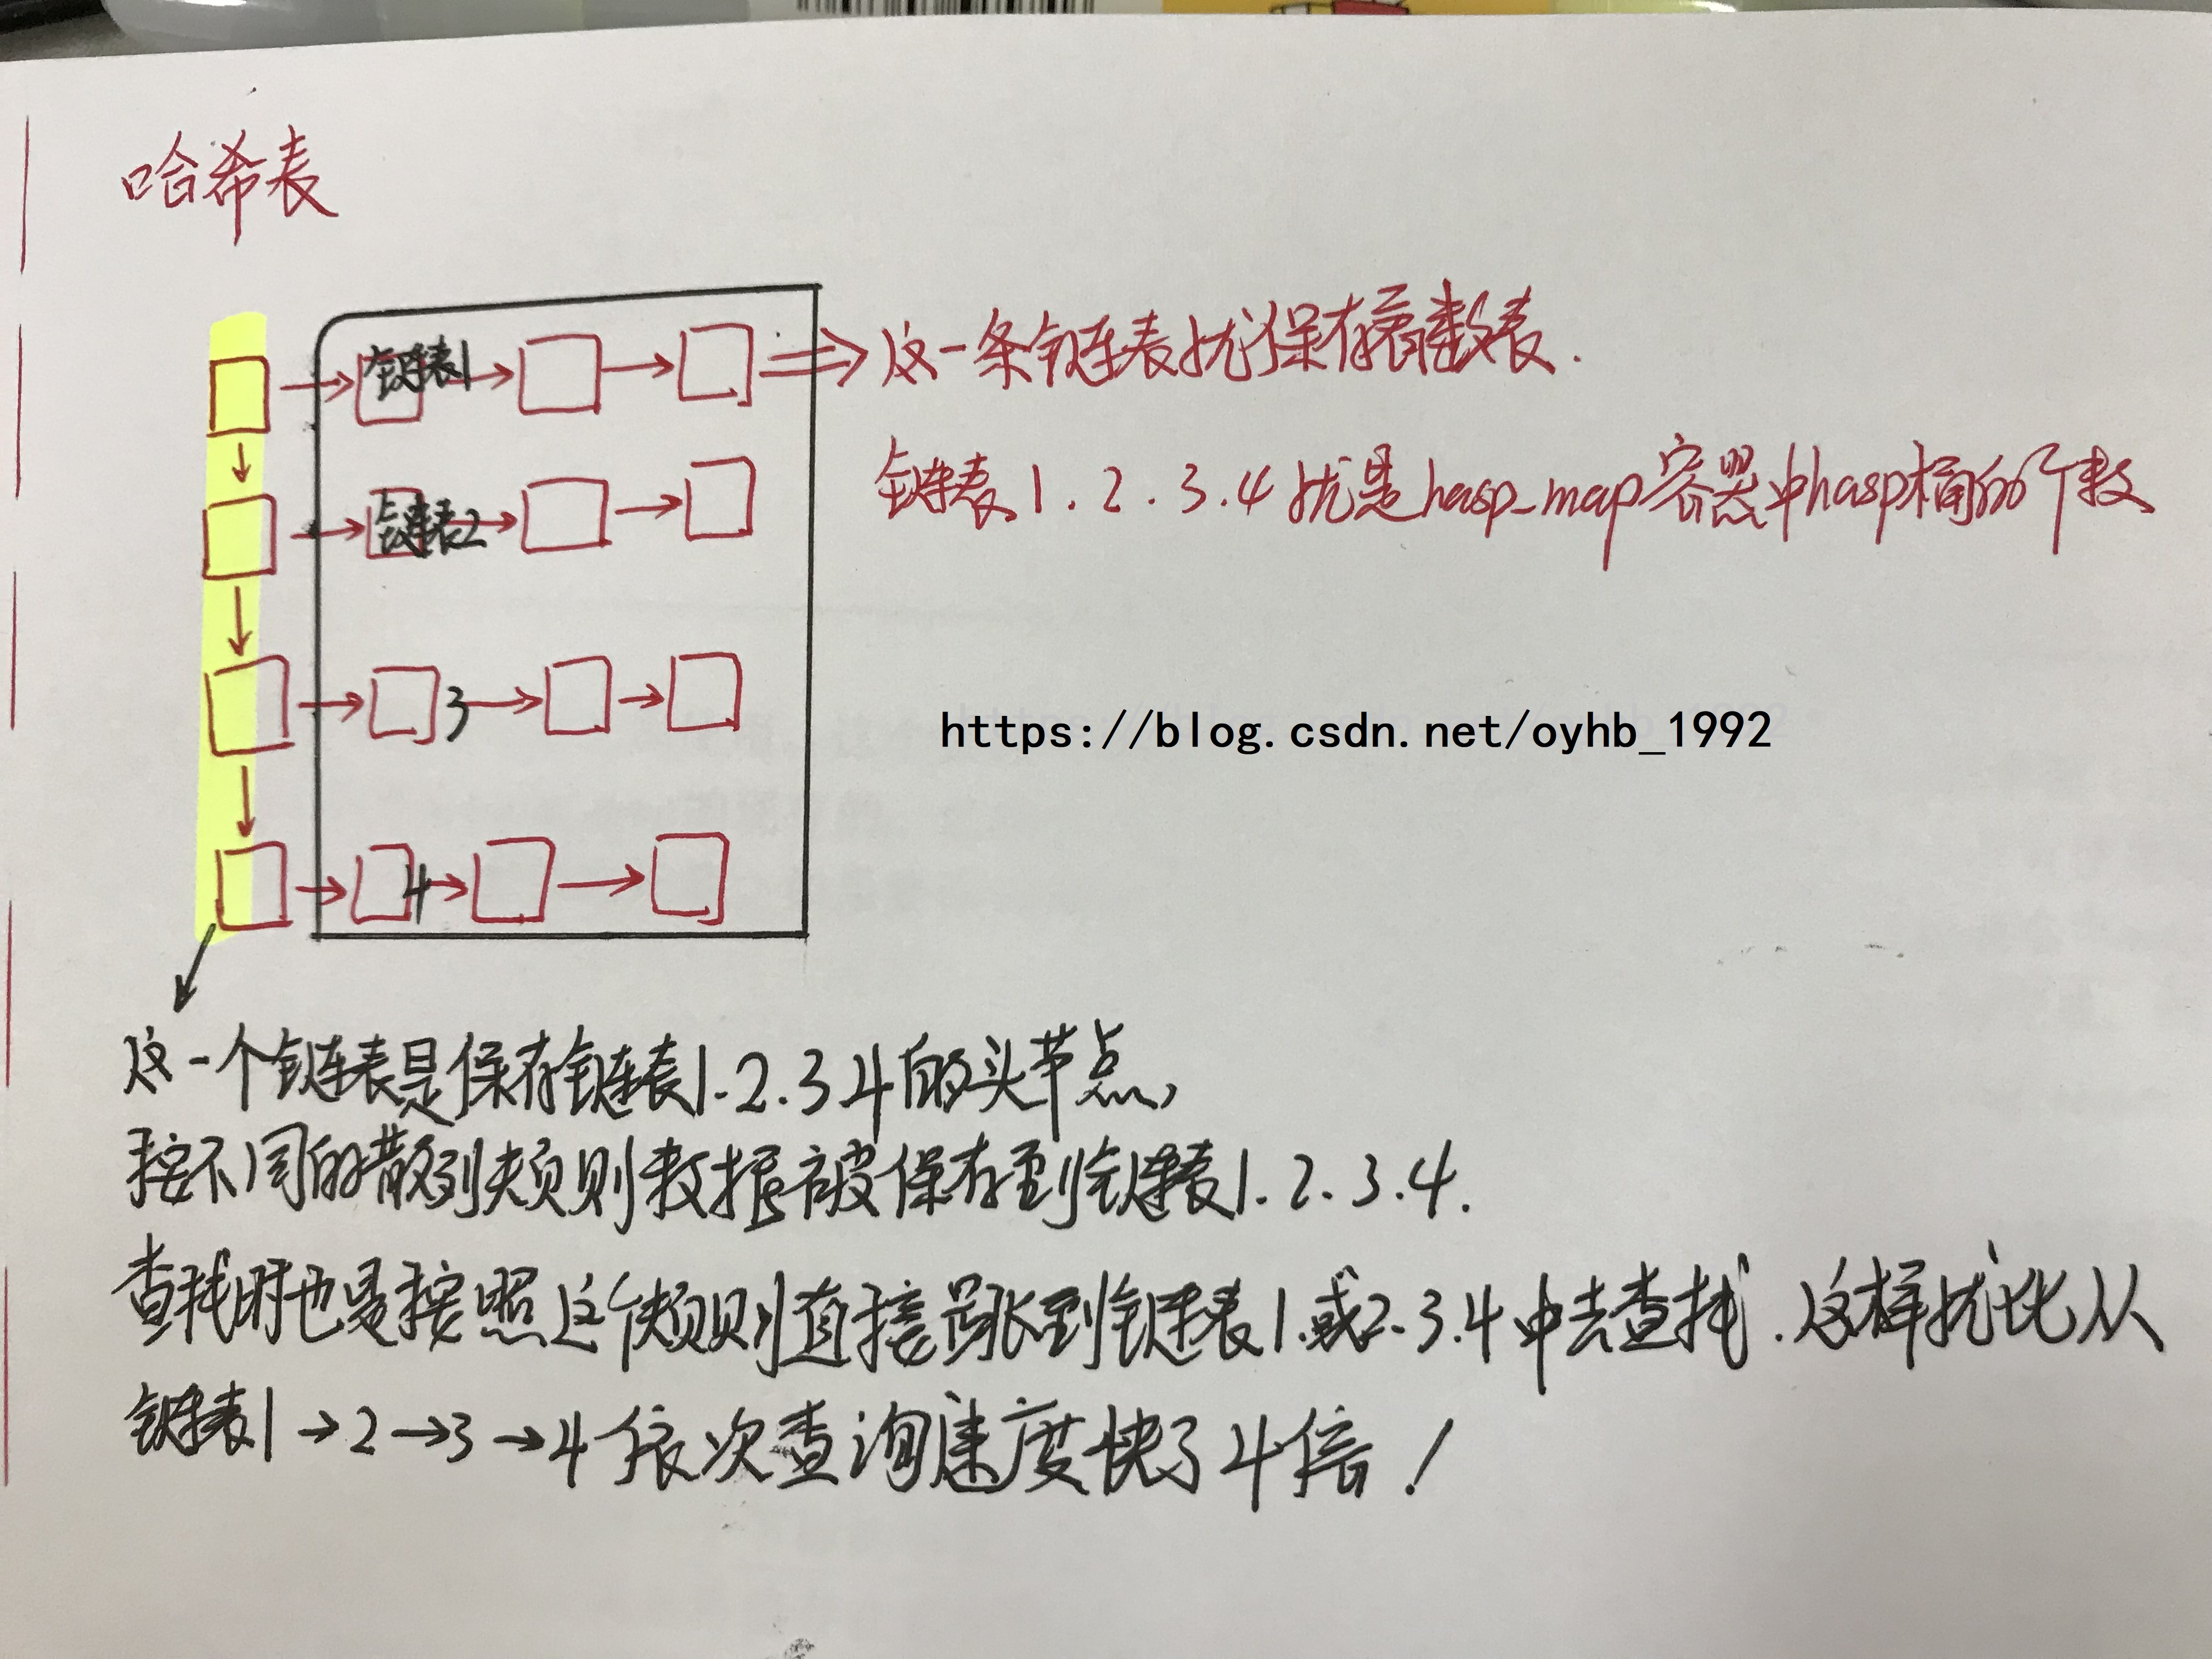 哈希表
链表1
这一条链表就保存着数表.
链表2
链表1.2.3.4就是hasp_map容器中hasp桶的个数
3
https://blog.csdn.net/oyhb_1992
4
这一个链表是保存链表1.2.3 4的头节点,
按不同的散列规则数据被保存到链表1.2.3.4.
查找时也是按照这个规则直接跳到链表1.或2.3.4中去查找.这样就比从
链表1→2→3→4依次查询速度快了4倍!